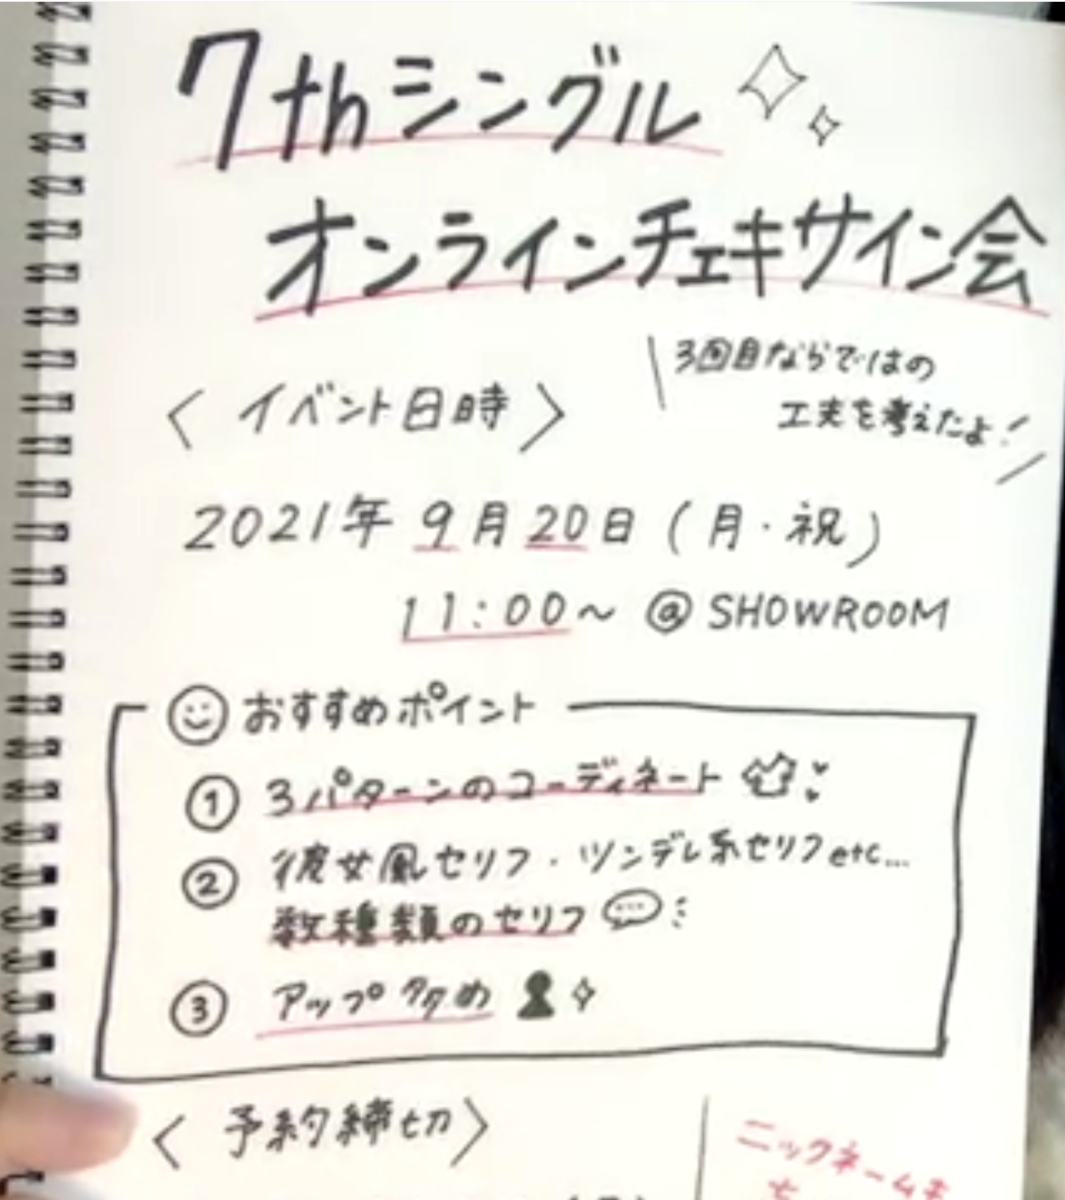 7thシングル
オンラインチェキサイン会
3回目ならではの
工夫を考えたよ！
〈 イベント日時 〉
2021年 9月20日（月・祝）
11:00〜 @SHOWROOM
おすすめポイント
① 3パターンのコーディネート
② 彼女風セリフ・ツンデレ系セリフetc...
数種類のセリフ
③ アップ多め
〈 予約締切 〉
ニックネームも